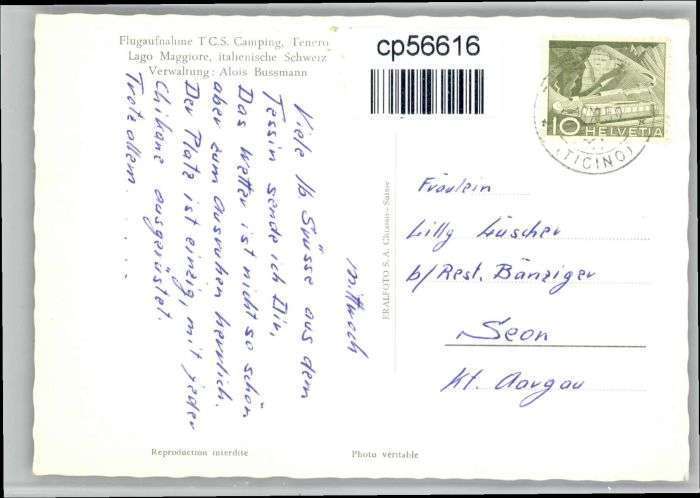 Flugaufnahme T C.S. Camping, Tenero
Lago Maggiore, italienische Schweiz
Verwaltung: Alois Bussmann
cp56616
10 HELVETIA
(TICINO)
Mittwoch
Viele lb Grüsse aus dem
Tessin sende ich Dir,
Das Wetter ist nicht so schön
aber zum ausruhen herrlich.
Der Platz ist einzig, mit jeder
Chikane ausgerüstet.
Trotz allem . . . .
ERALFOTO S.A. Chiasso-Suisse
Fräulein
Lilly Lüscher
b/Rest. Bänziger
Seon
Kt. Aargau
Reproduction interdite
Photo véritable